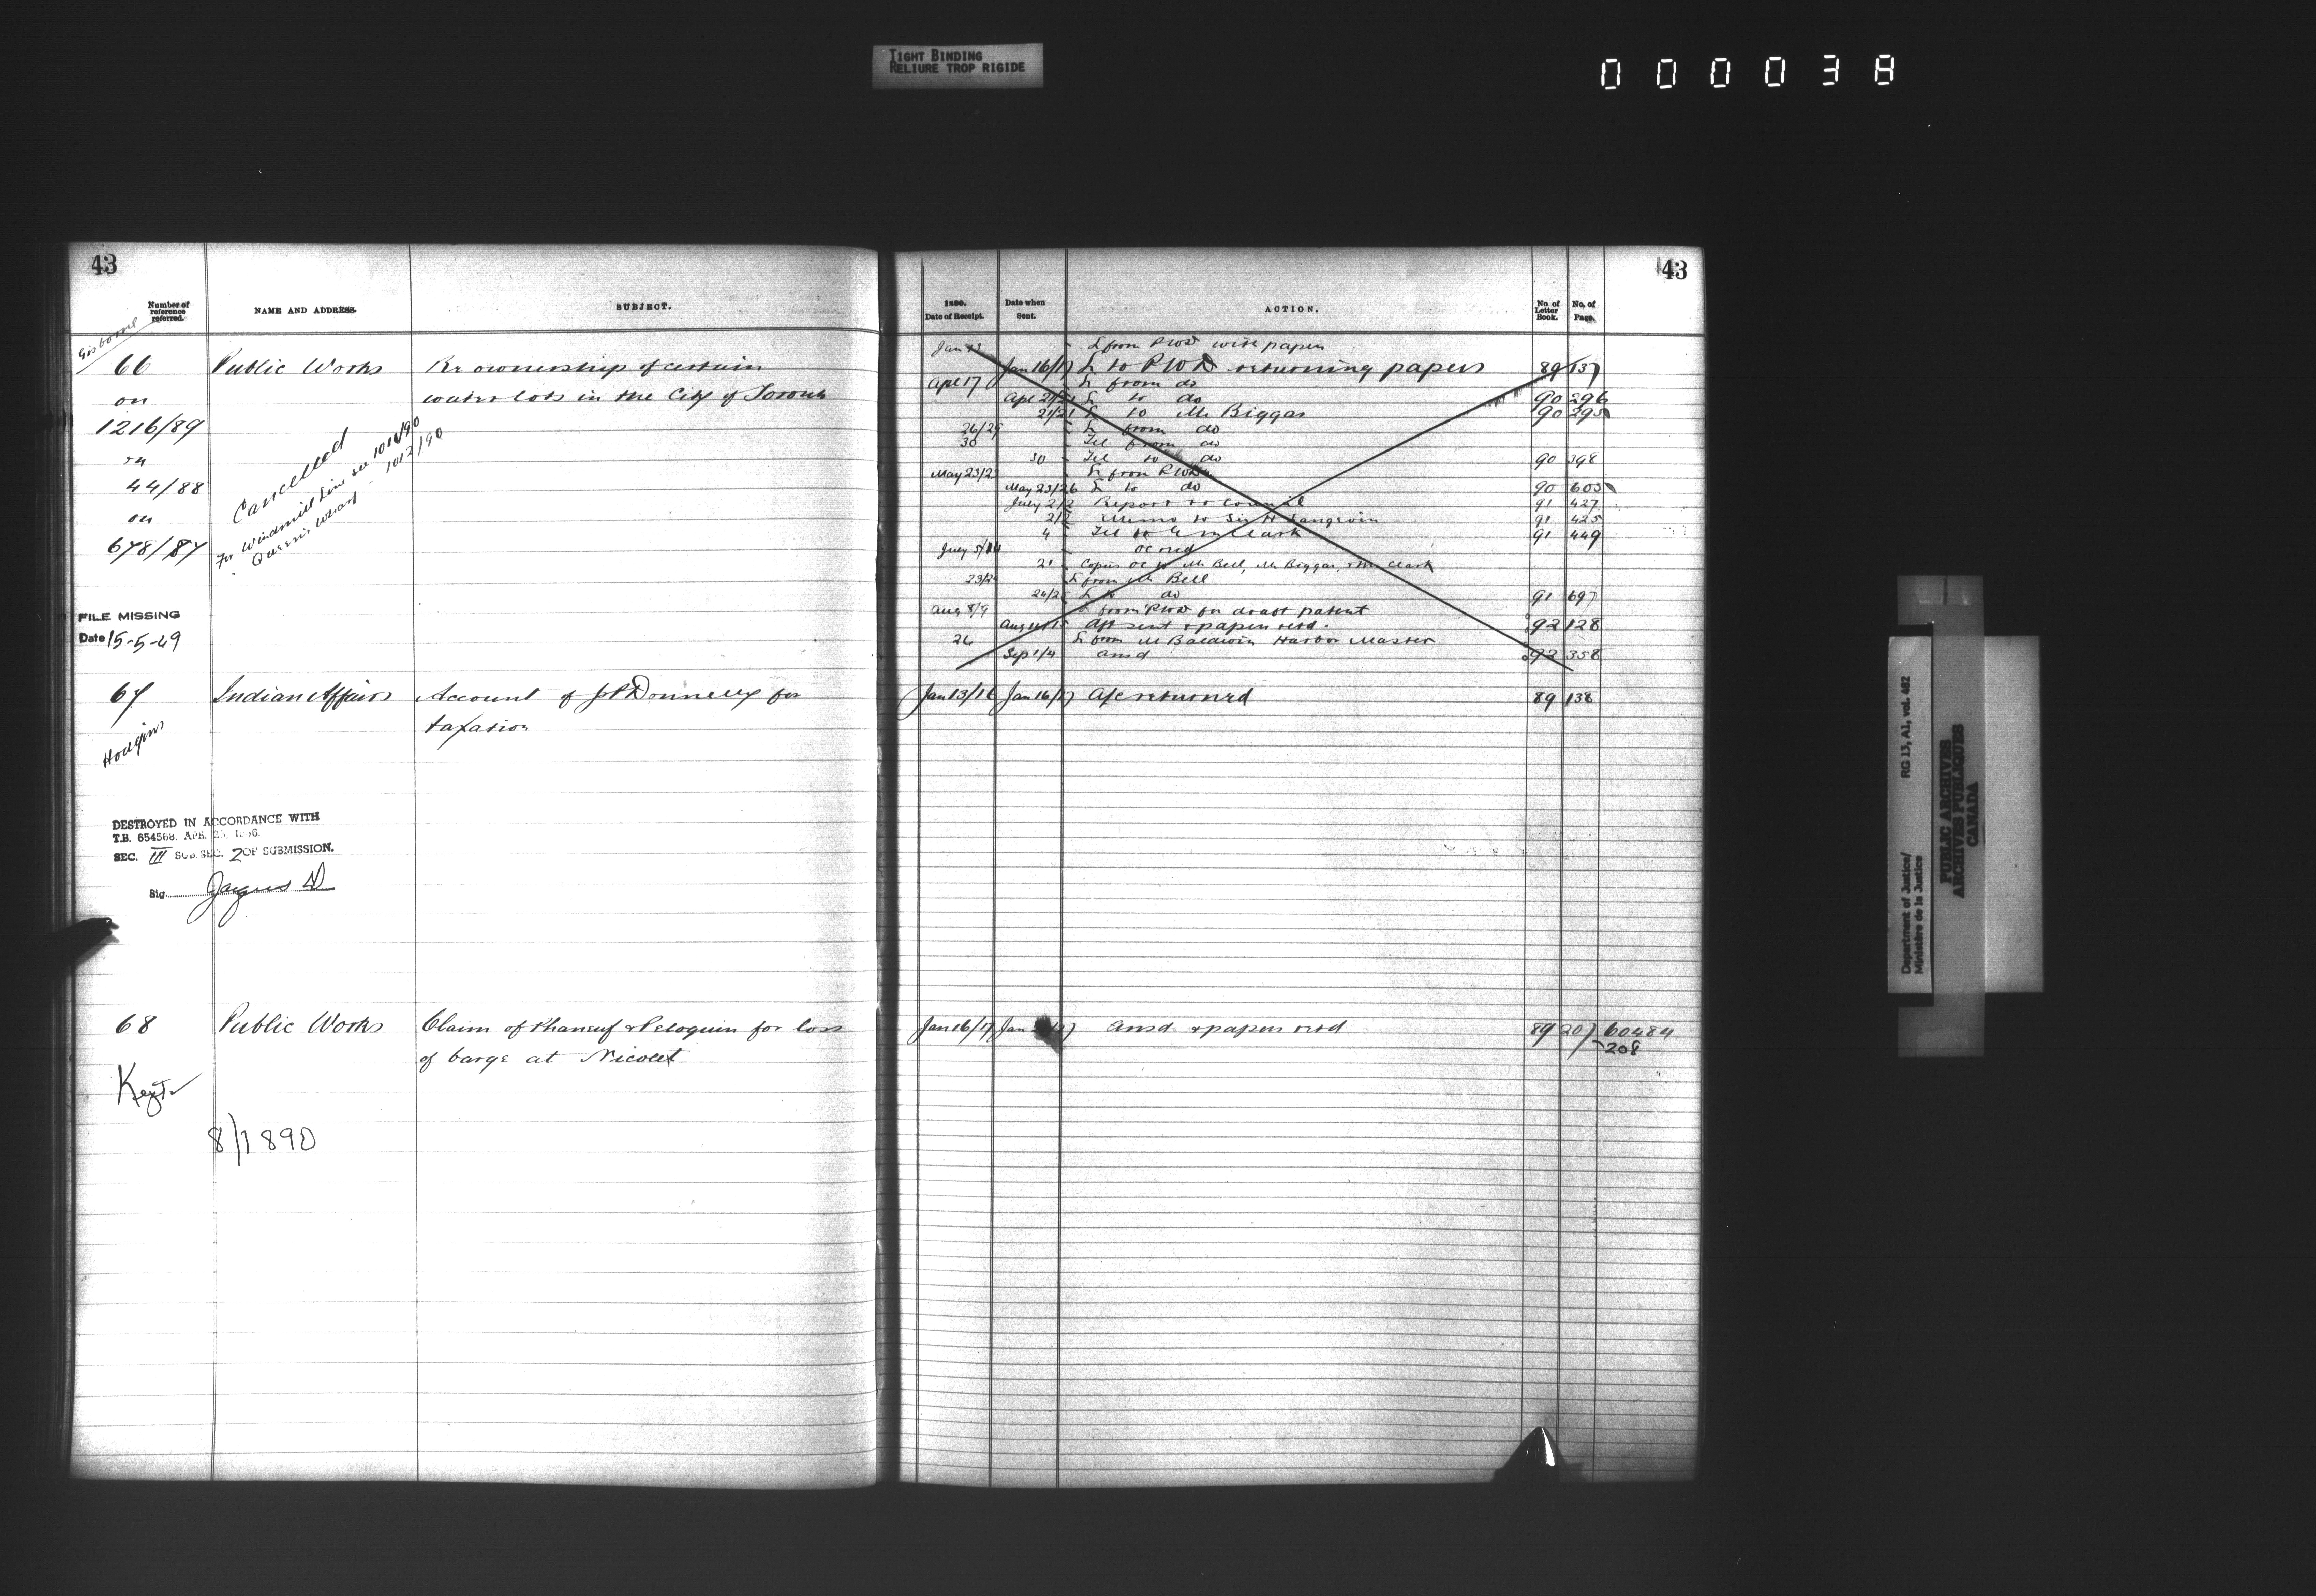 TIGHT BINDING
RELIURE TROP RIGIDE
000038
43
Number of
reference
referred.
NAME AND ADDRESS.
SUBJECT.
Gisborne
66
Public Works
Re ownership of certain
on
water lots in the City of Toronto
1216/89
on
44/88
on
678/87
Cancelled
For Windmill Line see 1011/90
" Queen's Wharf " 1012/90
FILE MISSING
Date 15-5-49
67
Indian Affairs
Account of Donnelly for
taxation
Hodgins
DESTROYED IN ACCORDANCE WITH
T.B. 654568. APR.
SEC. III SUB.SEC. 2 OF SUBMISSION.
Sig.
68
Public Works
Claim of Phaneuf & Peloquin for loss
of barge at Nicolet
8/1890
43
1890.
Date of Receipt.
Date when
Sent.
ACTION.
No. of
Letter
Book.
No. of
Page.
Jan 13 L from PWD with papers
Jan 16/17 L to PWD returning papers 89 137
Apl 17 L from do
Apl 21/21 L to do 90 296
21/21 L to Mr Biggar 90 295
26/29 L from do
30 Tel from do
30 Tel to do 90 398
May 23/23 L from PWD
May 23/26 L to do 90 605
July 2/2 Report to Council 91 427
2/2 Memo to Sir H Langevin 91 425
4 Tel to Clark 91 449
July 5/ OC recd
21 Copies OC to Mr Bell, Mr Biggar, & Mr Clark
23/24 L from Mr Bell
24/25 L to do 91 697
Aug 8/9 L from PWD for draft patent
Aug Dft sent & papers retd. 92 128
26 L from Mr Baldwin Harbor Master
Sep 1/4 ansd 92 358
Jan 13/16 Jan 16/17 A/c returned 89 138
Jan 16/17 Jan ansd & papers retd 89 207 60484
208
Department of Justice/
Ministère de la Justice
RG 13, A1, vol. 482
PUBLIC ARCHIVES
ARCHIVES PUBLIQUES
CANADA